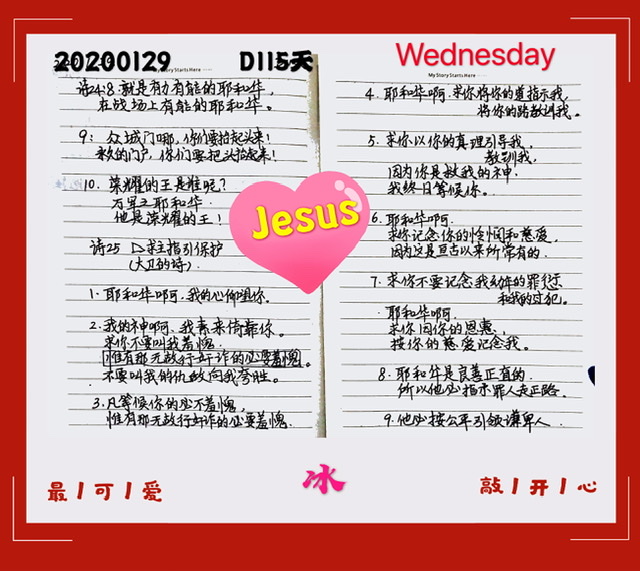 20200129 D115天
Wednesday
My Story Starts Here
诗24:8 就是有力有能的耶和华,
在战场上有能的耶和华。
9: 众城门哪,你们要抬起头来!
永久的门户,你们要把头抬起来!
10. 荣耀的王是谁呢?
万军之耶和华
他是荣耀的王!
诗25 ▷求主指引保护
(大卫的诗)
1. 耶和华啊.我的心仰望你.
2. 我的神啊.我素来倚靠你。
求你不要叫我羞愧
惟有那无故行奸诈的必要羞愧。
不要叫我的仇敌向我夸胜。
3. 凡等候你的必不羞愧,
惟有那无故行奸诈的必要羞愧.
Jesus
My Story Starts Here
4. 耶和华啊.求你将你的道指示我,
将你的路教训我。
5. 求你以你的真理引导我,
教训我,
因为你是救我的神.
我终日等候你。
6. 耶和华啊.
求你记念你的怜悯和慈爱,
因为这是亘古以来所常有的.
7. 求你不要记念我幼年的罪愆
和我的过犯。
耶和华啊.
求你因你的恩惠,
按你的慈爱记念我。
8. 耶和华是良善正直的.
所以他必指示罪人走正路。
9. 他必按公平引领谦卑人
最丨可丨爱
冰
敲丨开丨心